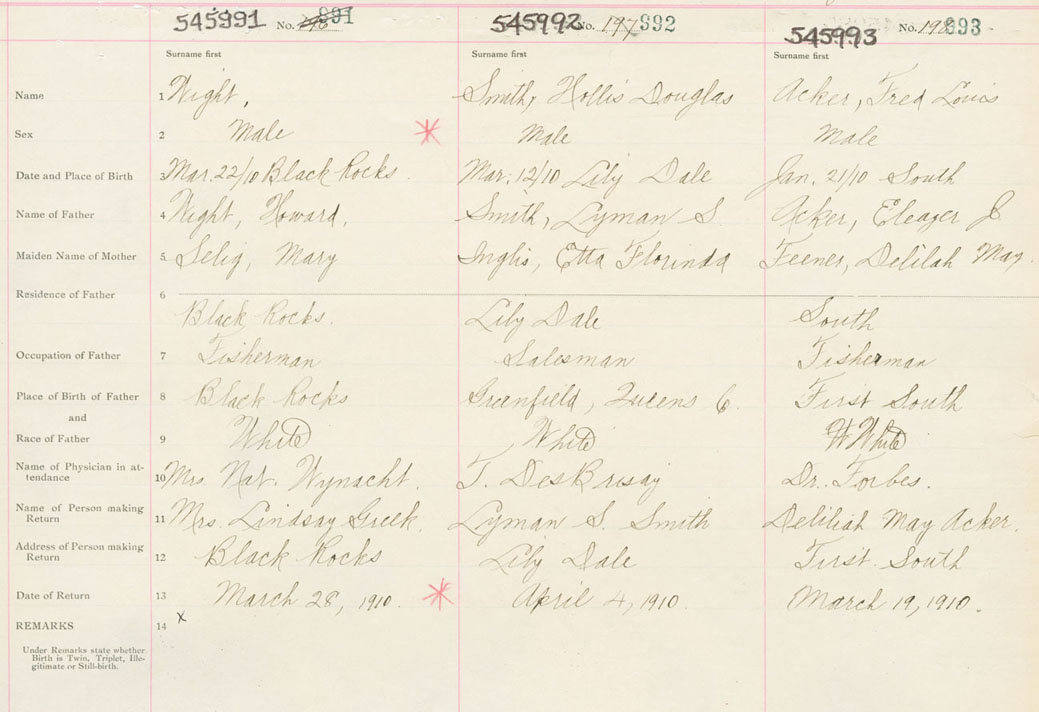 545991 No. 891 545992 No. 197 992 545993 No. 198 993
Surname first Surname first Surname first
Name 1 Night, Smith, Hollis Douglas Acker, Fred Louis
Sex 2 Male Male Male
Date and Place of Birth 3 Mar. 22/10 Black Rocks. Mar. 12/10 Lily Dale Jan. 21/10 South
Name of Father 4 Night, Howard, Smith, Lyman S. Acker, Eleazer J
Maiden Name of Mother 5 Selig, Mary Inglis, Etta Florinda Feener, Delilah May
Residence of Father 6
Black Rocks. Lily Dale South
Occupation of Father 7 Fisherman Salesman Fisherman
Place of Birth of Father 8 Black Rocks Greenfield, Queens Co. First South
and
Race of Father 9 White White White
Name of Physician in at-
tendance 10 Mrs. Nat. Wynacht. J. DesBrisay Dr. Forbes.
Name of Person making
Return 11 Mrs. Lindsay Greek. Lyman S. Smith Deliliah May Acker.
Address of Person making
Return 12 Black Rocks Lily Dale First South
Date of Return 13 March 28, 1910. April 4, 1910. March 19, 1910.
REMARKS 14 x
Under Remarks state whether
Birth is Twin, Triplet, Ille-
gitimate or Still-birth.